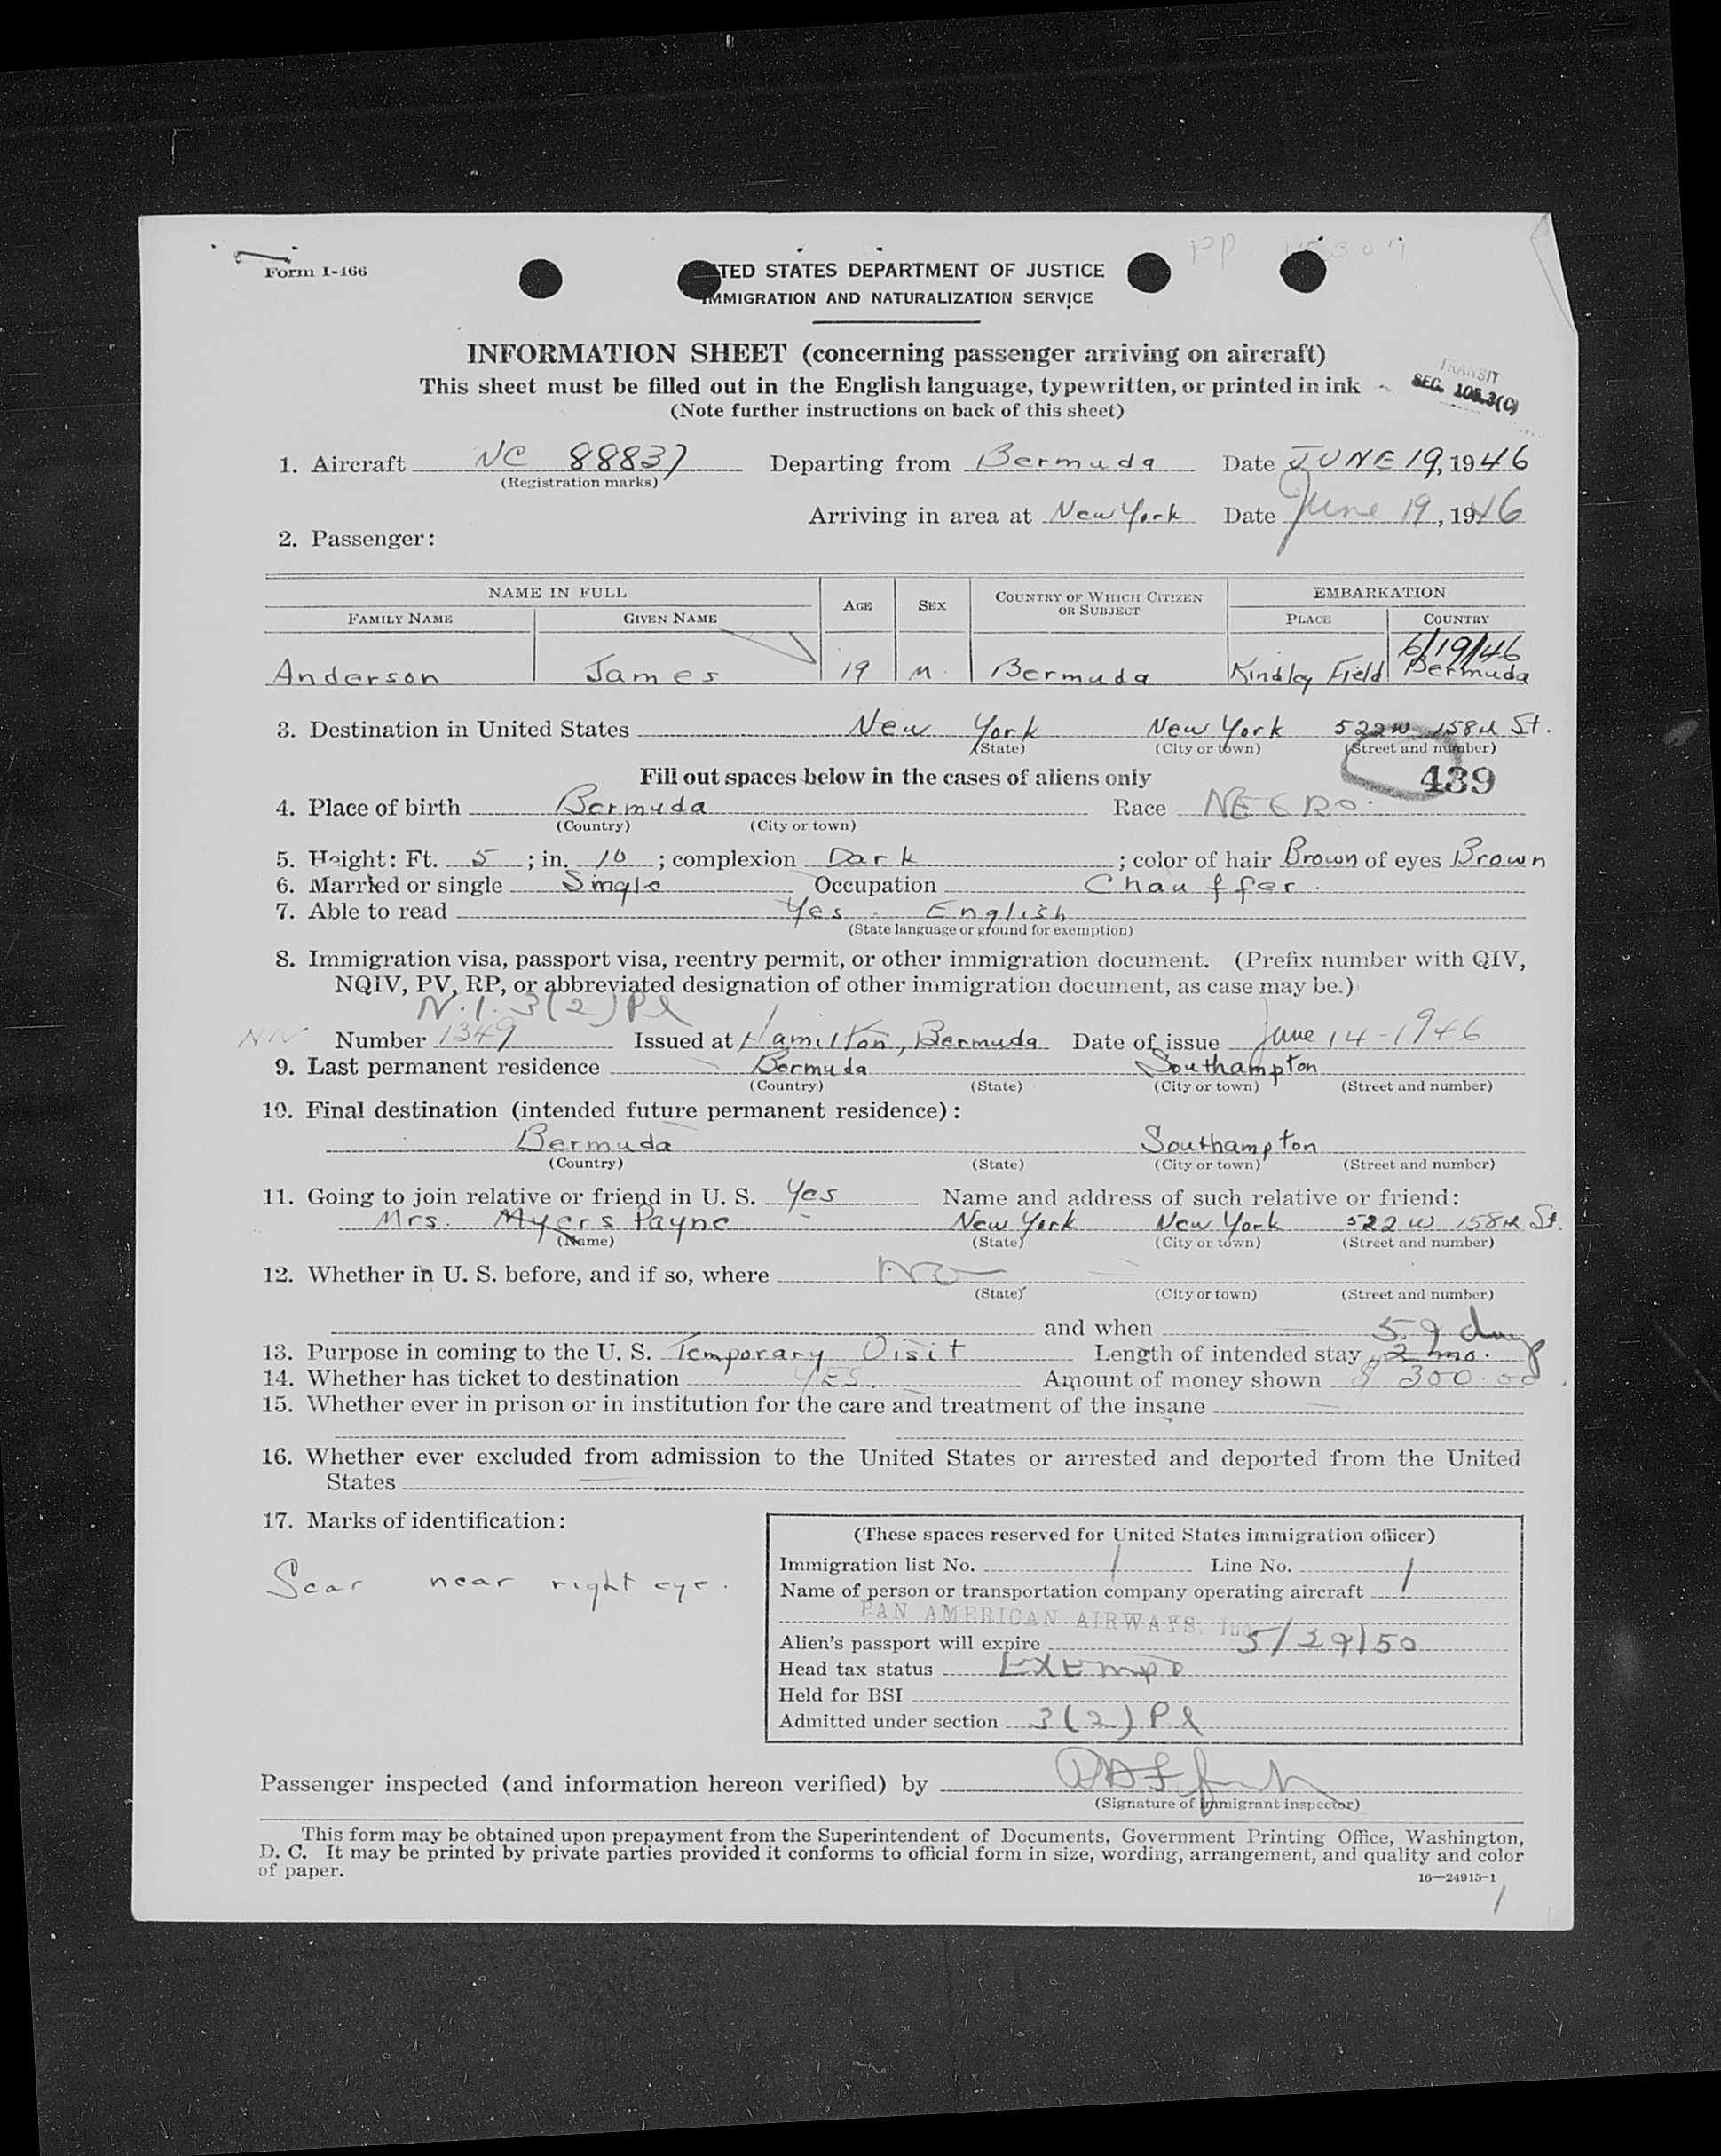 Form I-466
TED STATES DEPARTMENT OF JUSTICE
IMMIGRATION AND NATURALIZATION SERVICE
INFORMATION SHEET (concerning passenger arriving on aircraft)
This sheet must be filled out in the English language, typewritten, or printed in ink
(Note further instructions on back of this sheet)
TRANSIT
SEC. 105.3(C)
1. Aircraft NC 88837 Departing from Bermuda Date JUNE 19, 1946
(Registration marks)
Arriving in area at New York Date June 19, 1946
2. Passenger:
NAME IN FULL AGE SEX COUNTRY OF WHICH CITIZEN OR SUBJECT EMBARKATION
FAMILY NAME GIVEN NAME PLACE COUNTRY
6/19/46
Anderson James 19 M. Bermuda Kindley Field Bermuda
3. Destination in United States New York New York 522 W 158th St.
(State) (City or town) (Street and number)
Fill out spaces below in the cases of aliens only
439
4. Place of birth Bermuda Race NEGRO.
(Country) (City or town)
5. Height: Ft. 5; in. 10; complexion Dark; color of hair Brown of eyes Brown
6. Married or single Single Occupation Chauffer.
7. Able to read Yes - English
(State language or ground for exemption)
8. Immigration visa, passport visa, reentry permit, or other immigration document. (Prefix number with QIV,
NQIV, PV, RP, or abbreviated designation of other immigration document, as case may be.)
N.I. 3(2) Pl
NIV Number 1349 Issued at Hamilton, Bermuda Date of issue June 14-1946
9. Last permanent residence Bermuda Southampton
(Country) (State) (City or town) (Street and number)
10. Final destination (intended future permanent residence):
Bermuda Southampton
(Country) (State) (City or town) (Street and number)
11. Going to join relative or friend in U. S. Yes Name and address of such relative or friend:
Mrs. Myers Payne New York New York 522 W 158th St.
(Name) (State) (City or town) (Street and number)
12. Whether in U. S. before, and if so, where No
(State) (City or town) (Street and number)
and when
59 days
13. Purpose in coming to the U. S. Temporary Visit Length of intended stay 2 mo.
14. Whether has ticket to destination YES. Amount of money shown $ 300.00
15. Whether ever in prison or in institution for the care and treatment of the insane
16. Whether ever excluded from admission to the United States or arrested and deported from the United
States
17. Marks of identification:
Scar near right eye.
(These spaces reserved for United States immigration officer)
Immigration list No. 1 Line No. 1
Name of person or transportation company operating aircraft
PAN AMERICAN AIRWAYS, Inc
Alien's passport will expire 5/29/50
Head tax status Exempt
Held for BSI
Admitted under section 3(2) Pl
Passenger inspected (and information hereon verified) by
(Signature of immigrant inspector)
This form may be obtained upon prepayment from the Superintendent of Documents, Government Printing Office, Washington,
D. C. It may be printed by private parties provided it conforms to official form in size, wording, arrangement, and quality and color
of paper.
16—24915-1
1